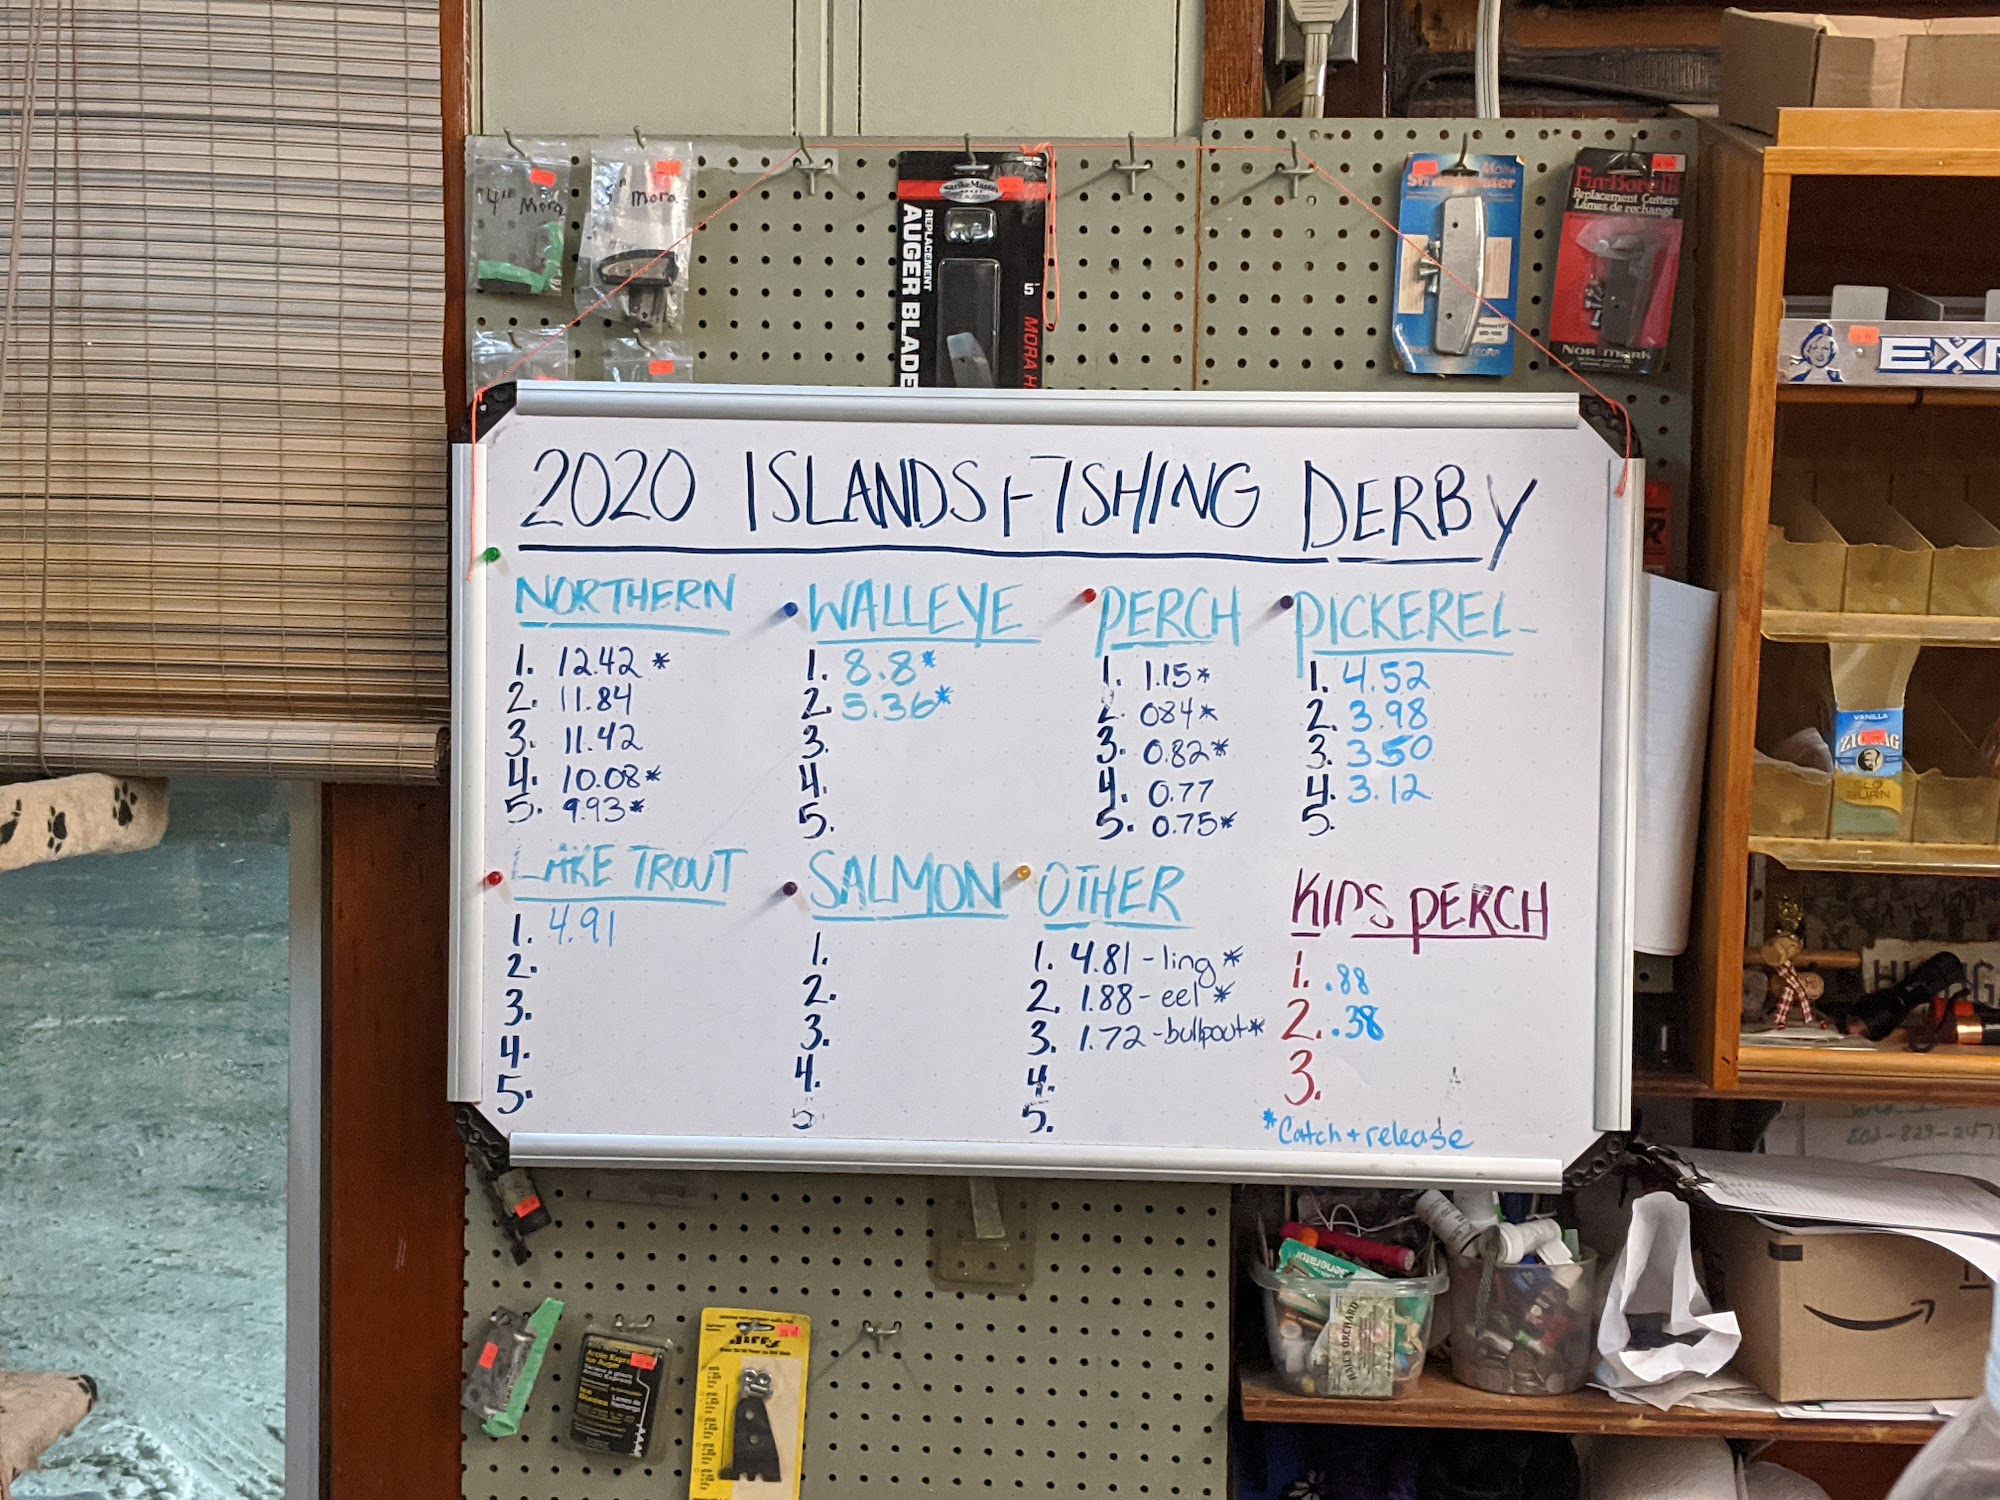 4" Mora
" Mora
StrikeMaster
REPLACEMENT
AUGER BLADE
5" MORA H
Mora
StrikeMaster
CORP
Fin-Bore III
Replacement Cutters
Lames de rechange
NORMARK
EX
2020 ISLANDS FISHING DERBY
NORTHERN
1. 12.42 *
2. 11.84
3. 11.42
4. 10.08 *
5. 9.93 *
WALLEYE
1. 8.8 *
2. 5.36 *
3.
4.
5.
PERCH
1. 1.15 *
2. 084 *
3. 0.82 *
4. 0.77
5. 0.75 *
PICKEREL
1. 4.52
2. 3.98
3. 3.50
4. 3.12
5.
LAKE TROUT
1. 4.91
2.
3.
4.
5.
SALMON
1.
2.
3.
4.
5
OTHER
1. 4.81 - ling *
2. 1.88 - eel *
3. 1.72 - bullpout *
4.
5.
KIDS PERCH
1. .88
2. .38
3.
* Catch + release
VANILLA
ZIG ZAG
SLO
BURN
Generator
HALL'S ORCHARD
Arctic Express
Ice Auger
Jiffy